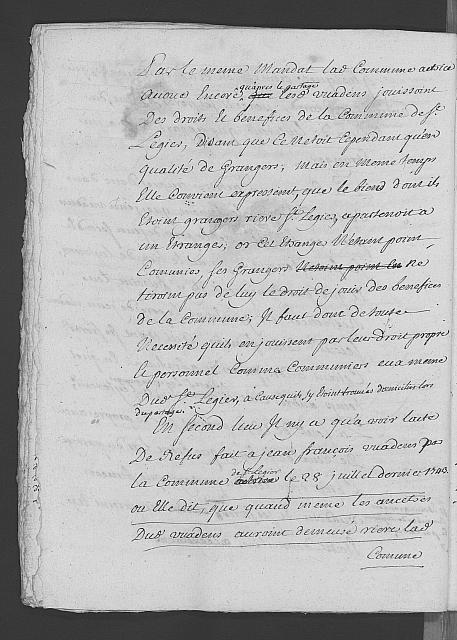 Par le meme Mandat lad Commune actrice
avoue Encore, qu'apres le partage lesd vuadens jouissoint
Des droits et benefices de la Commune de St
Legier, Disant que Ce N'etoit Cependant qu'en
qualité de Grangers; Mais en Meme temps
Elle Convient expressemt, que le biend dont ils
Etoint grangers riere St Legier, apartenoit a
un Etranger; or Cet Etranger N'etant point
Comunier, ses Grangers N'etoint point En Ne
tiroint pas de luy le droit de jouir des benefices
de la Commune; Il faut donc de toute
Necessité quils en jouissent par leur droit propre
& personnel Comme Communiers eux meme
Dud St Legier, à Cause quils s'y Etoint trouvés domiciliés lors
du partage.
En second lieu Il n'y a qu'a voir l'acte
De Refus fait a jean françois vuadens pr
la Commune de St Legier le 28 juillet dernier 1743.
ou Elle dit, que quand meme les ancetres
Dud vuadens auroint demeuré riere lad
Comune